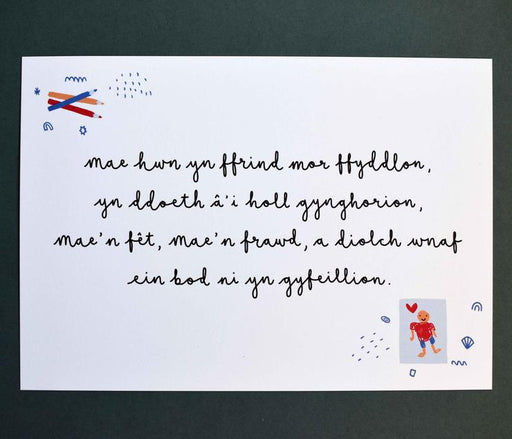 mae hwn yn ffrind mor ffyddlon,
yn ddoeth â'i holl gynghorion,
mae'n fêt, mae'n frawd, a diolch wnaf
ein bod ni yn gyfeillion.